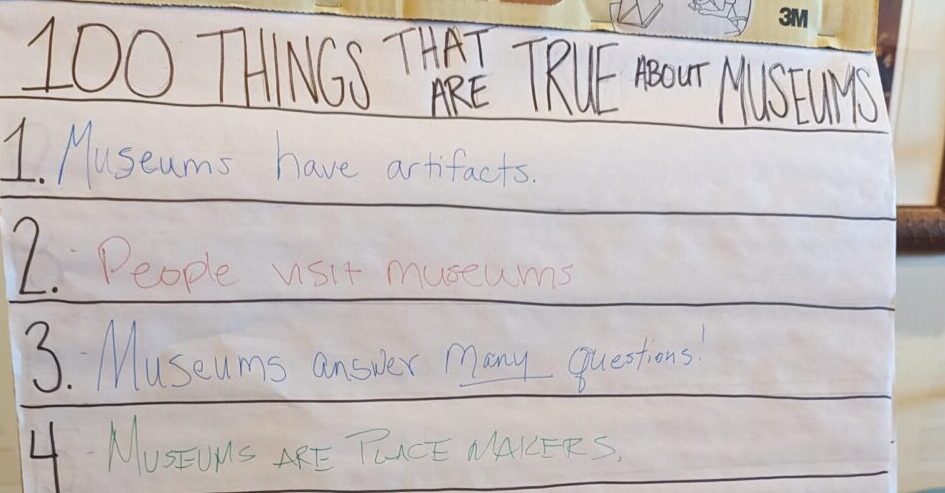 3M
100 THINGS THAT ARE TRUE ABOUT MUSEUMS
1. Museums have artifacts.
2. People visit museums
3. Museums answer many questions!
4 MUSEUMS ARE PLACE MAKERS.